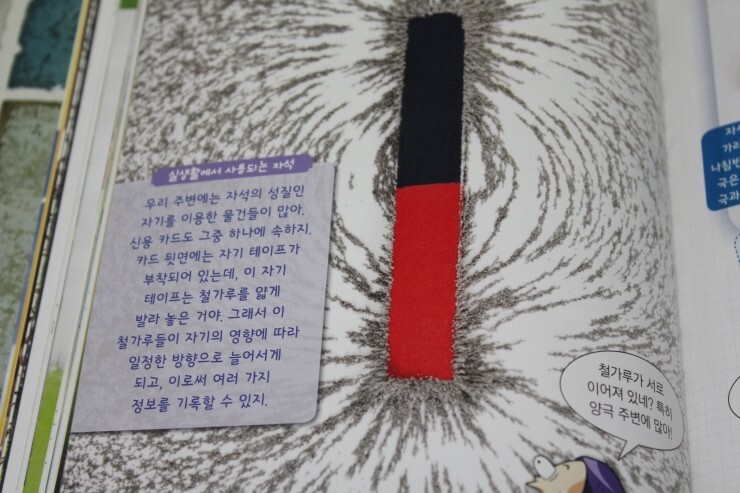 실생활에서 사용되는 자석
우리 주변에는 자석의 성질인
자기를 이용한 물건들이 많아.
신용 카드도 그중 하나에 속하지.
카드 뒷면에는 자기 테이프가
부착되어 있는데, 이 자기
테이프는 철가루를 얇게
발라 놓은 거야. 그래서 이
철가루들이 자기의 영향에 따라
일정한 방향으로 늘어서게
되고, 이로써 여러 가지
정보를 기록할 수 있지.
철가루가 서로
이어져 있네? 특히
양극 주변에 많아!